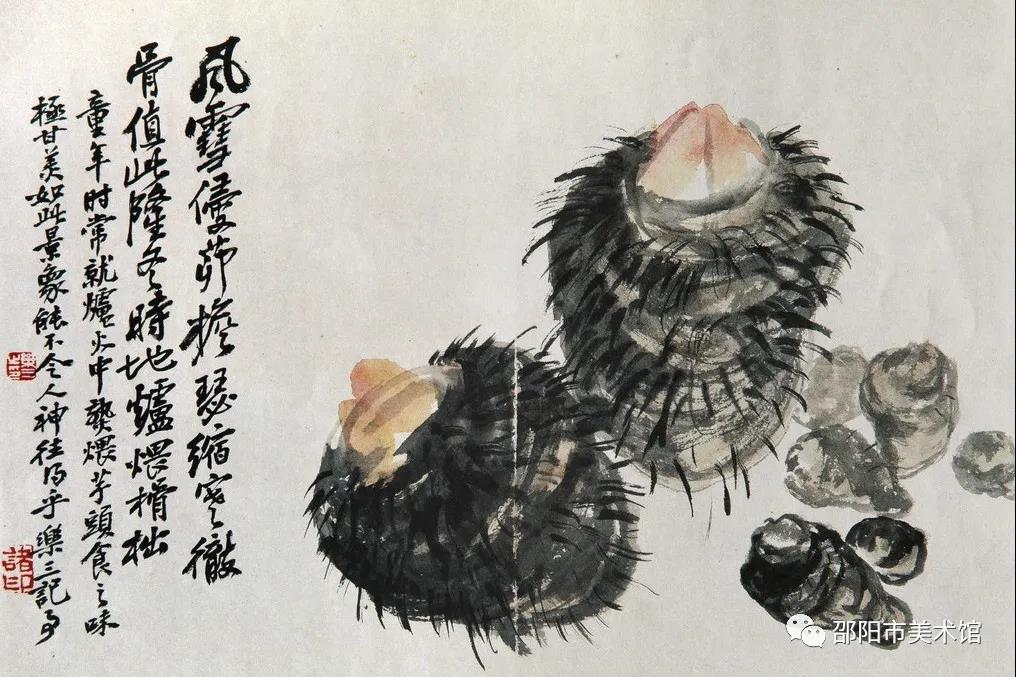 風雪侵茆檐瑟縮寒徹
骨值此隆冬時地爐煨榾柮
童年时常就爐火中煨芋頭食之味
極甘美如此景象能不令人神往乎樂三記
諸
印
邵阳市美术馆